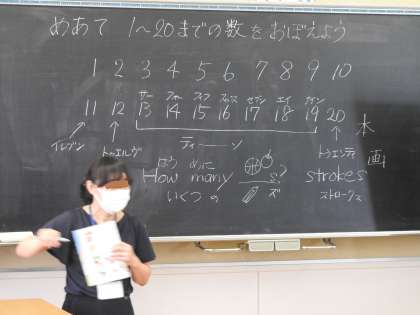 めあて 1~20までの数をおぼえよう
1 2 3 4 5 6 7 8 9 10
サー フォー フィフ スィックス セブン エイ ナイン
11 12 13 14 15 16 17 18 19 20 木
イレブン トゥエルヴ ティーン トゥエンティ 画
はう めに
How many s? strokes
いくつの ズ ストロークス